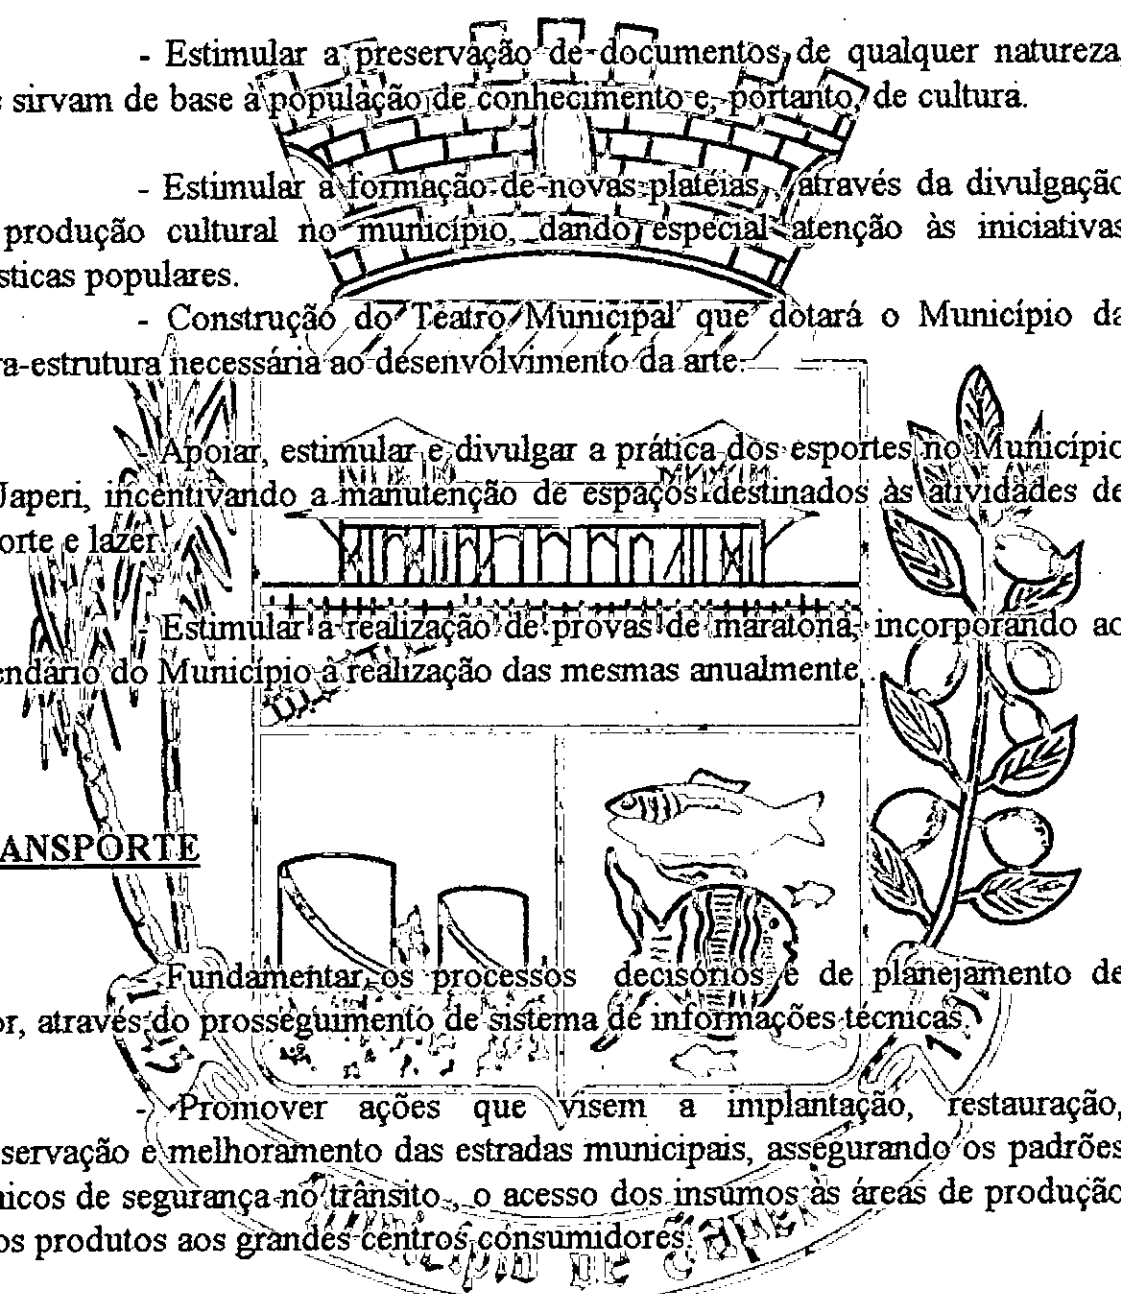 - Estimular a preservação de documentos, de qualquer natureza,
sirvam de base à população de conhecimento e, portanto, de cultura.
- Estimular a formação de novas plateias, através da divulgação
produção cultural no município, dando especial atenção às iniciativas
sticas populares.
- Construção do Teatro Municipal que dotará o Município da
ra-estrutura necessária ao desenvolvimento da arte.
- Apoiar, estimular e divulgar a prática dos esportes no Município
Japeri, incentivando a manutenção de espaços destinados às atividades de
orte e lazer.
- Estimular a realização de provas de maratona, incorporando ao
endário do Município a realização das mesmas anualmente.
ANSPORTE
Fundamentar os processos decisórios e de planejamento de
or, através do prosseguimento de sistema de informações técnicas.
- Promover ações que visem a implantação, restauração,
servação e melhoramento das estradas municipais, assegurando os padrões
nicos de segurança no trânsito, o acesso dos insumos às áreas de produção
os produtos aos grandes centros consumidores.
de